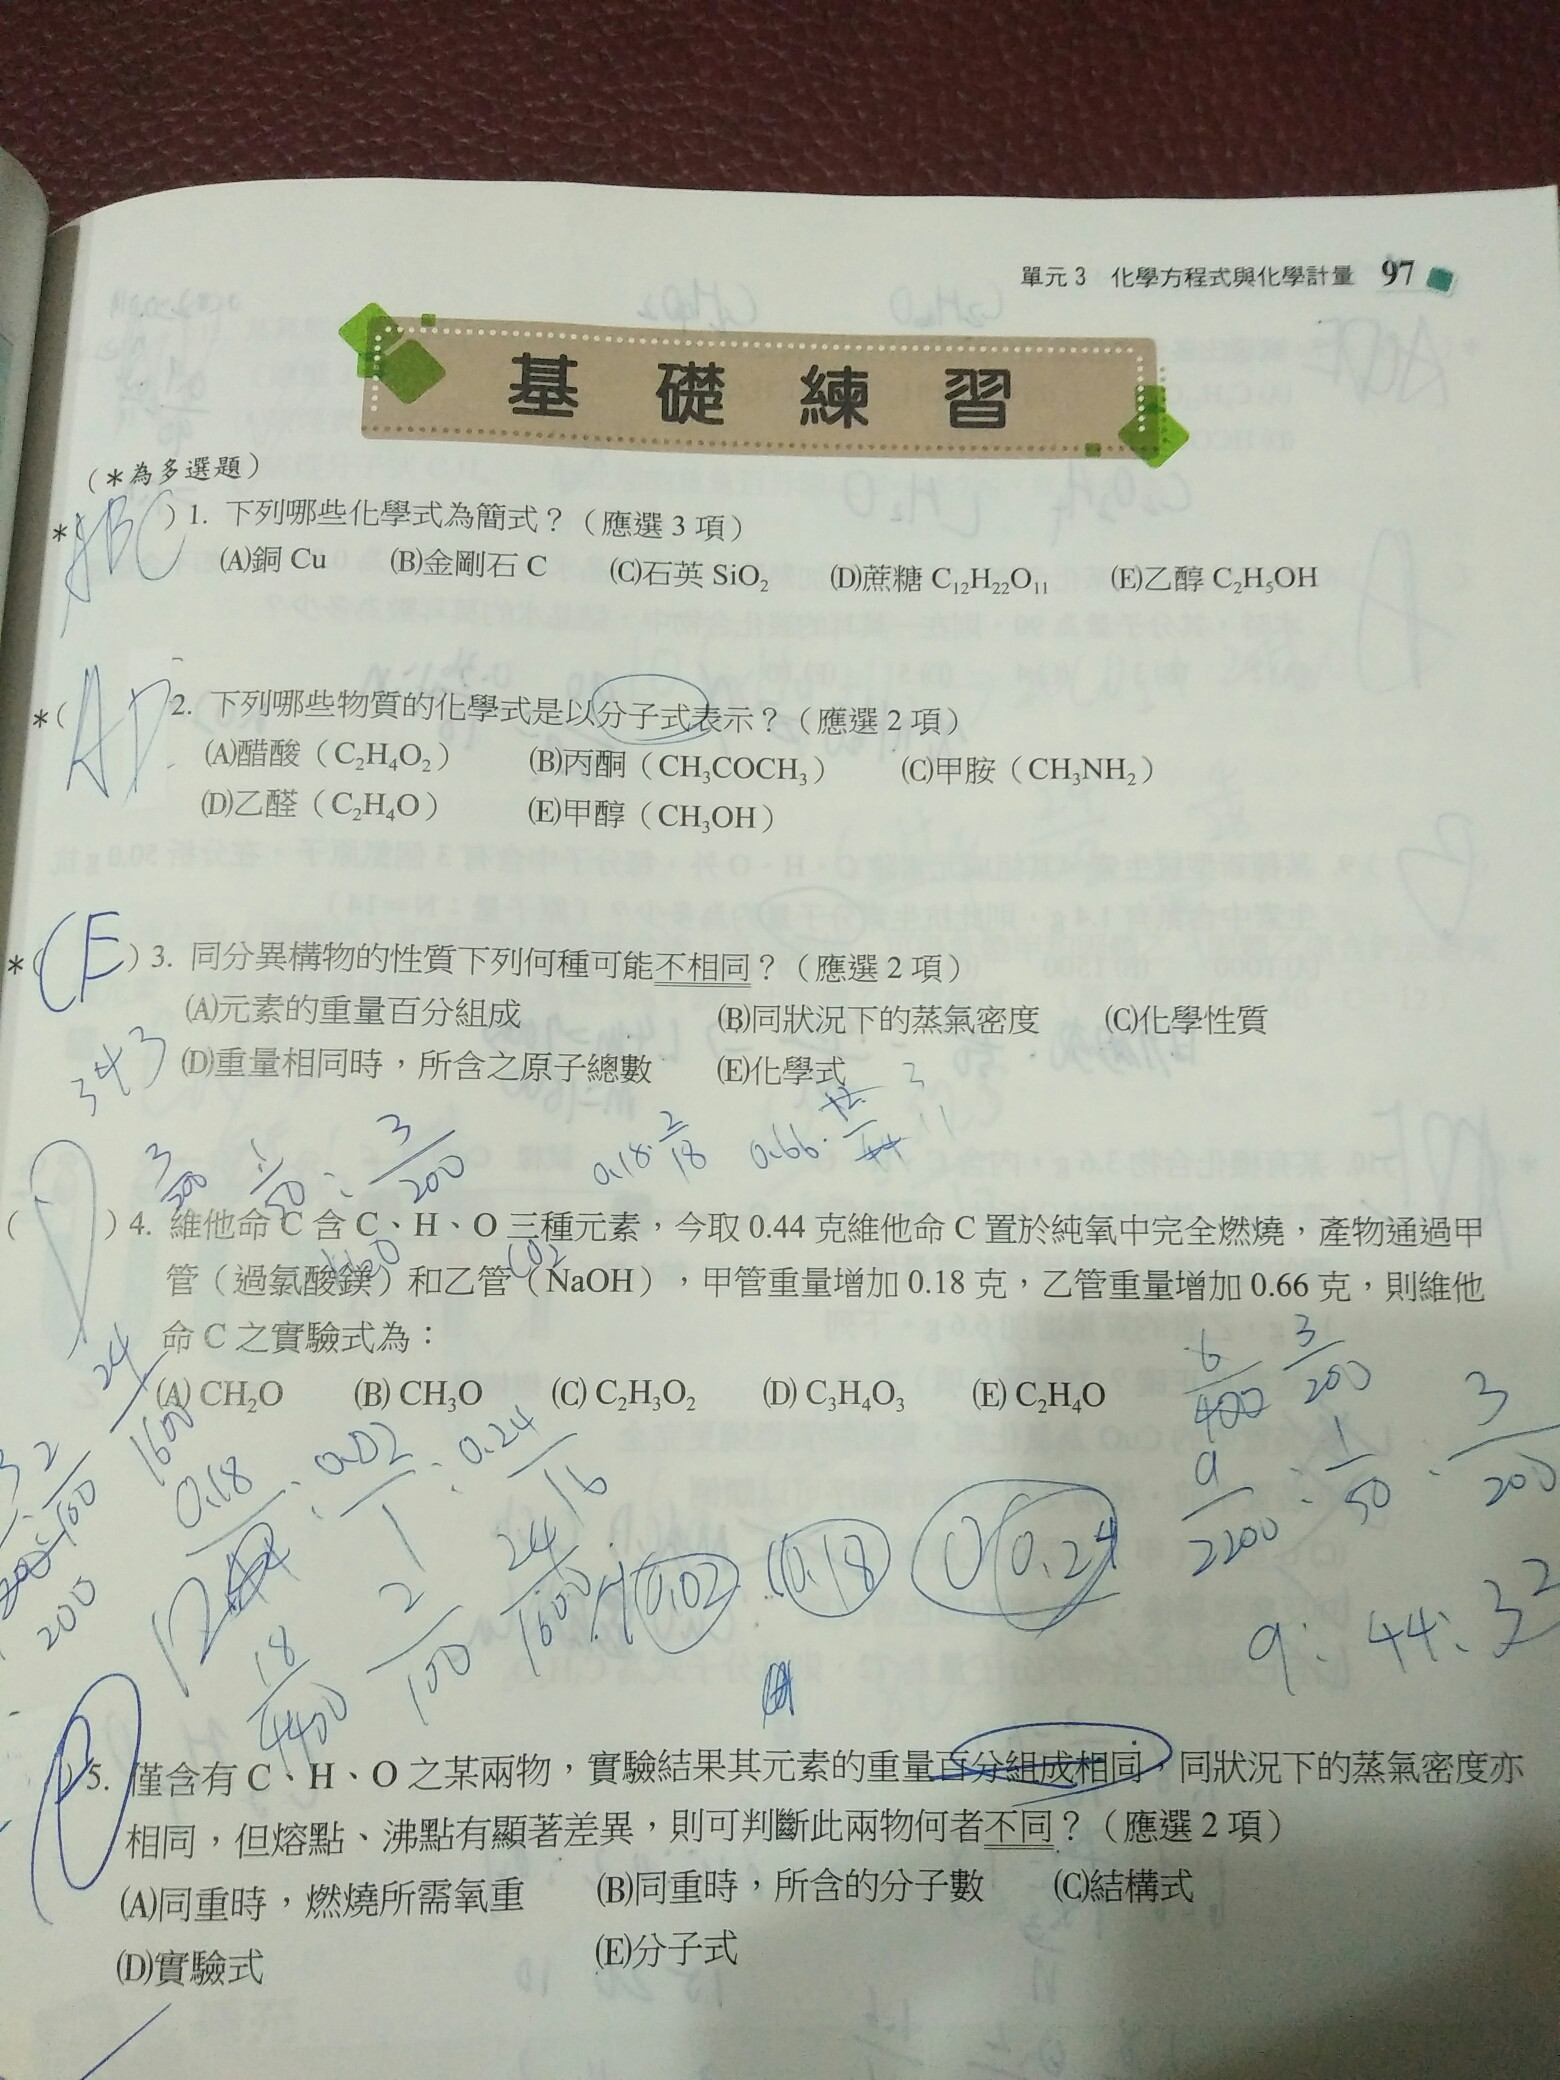 單元3 化學方程式與化學計量 97
基礎練習
(＊為多選題)
＊(ABC) 1. 下列哪些化學式為簡式？(應選3項)
(A)銅 Cu (B)金剛石 C (C)石英 SiO₂ (D)蔗糖 C₁₂H₂₂O₁₁ (E)乙醇 C₂H₅OH
＊(AD 2. 下列哪些物質的化學式是以分子式表示？(應選2項)
(A)醋酸(C₂H₄O₂) (B)丙酮(CH₃COCH₃) (C)甲胺(CH₃NH₂)
(D)乙醛(C₂H₄O) (E)甲醇(CH₃OH)
＊(CE) 3. 同分異構物的性質下列何種可能不相同？(應選2項)
(A)元素的重量百分組成 (B)同狀況下的蒸氣密度 (C)化學性質
(D)重量相同時，所含之原子總數 (E)化學式
343
3/200 1/50 : 3/200 0.18·2/18 0.66·12/44 3 11
(D) 4. 維他命 C 含 C、H、O 三種元素，今取 0.44 克維他命 C 置於純氧中完全燃燒，產物通過甲
H₂O CO2
管(過氯酸鎂)和乙管(NaOH)，甲管重量增加 0.18 克，乙管重量增加 0.66 克，則維他
命 C 之實驗式為：
24/1600 6/400 3/200
(A) CH₂O (B) CH₃O (C) C₂H₃O₂ (D) C₃H₄O₃ (E) C₂H₄O
0.18/12 : 0.02/1 : 0.24/16 9/2200 : 1/50 : 3/200
2/100 200
18/4400 2/100 24/1600 H 0.02 0.18 O 0.24 9:44:32
5. 僅含有 C、H、O 之某兩物，實驗結果其元素的重量百分組成相同，同狀況下的蒸氣密度亦
相同，但熔點、沸點有顯著差異，則可判斷此兩物何者不同？(應選2項)
(A)同重時，燃燒所需氧重 (B)同重時，所含的分子數 (C)結構式
(D)實驗式 (E)分子式